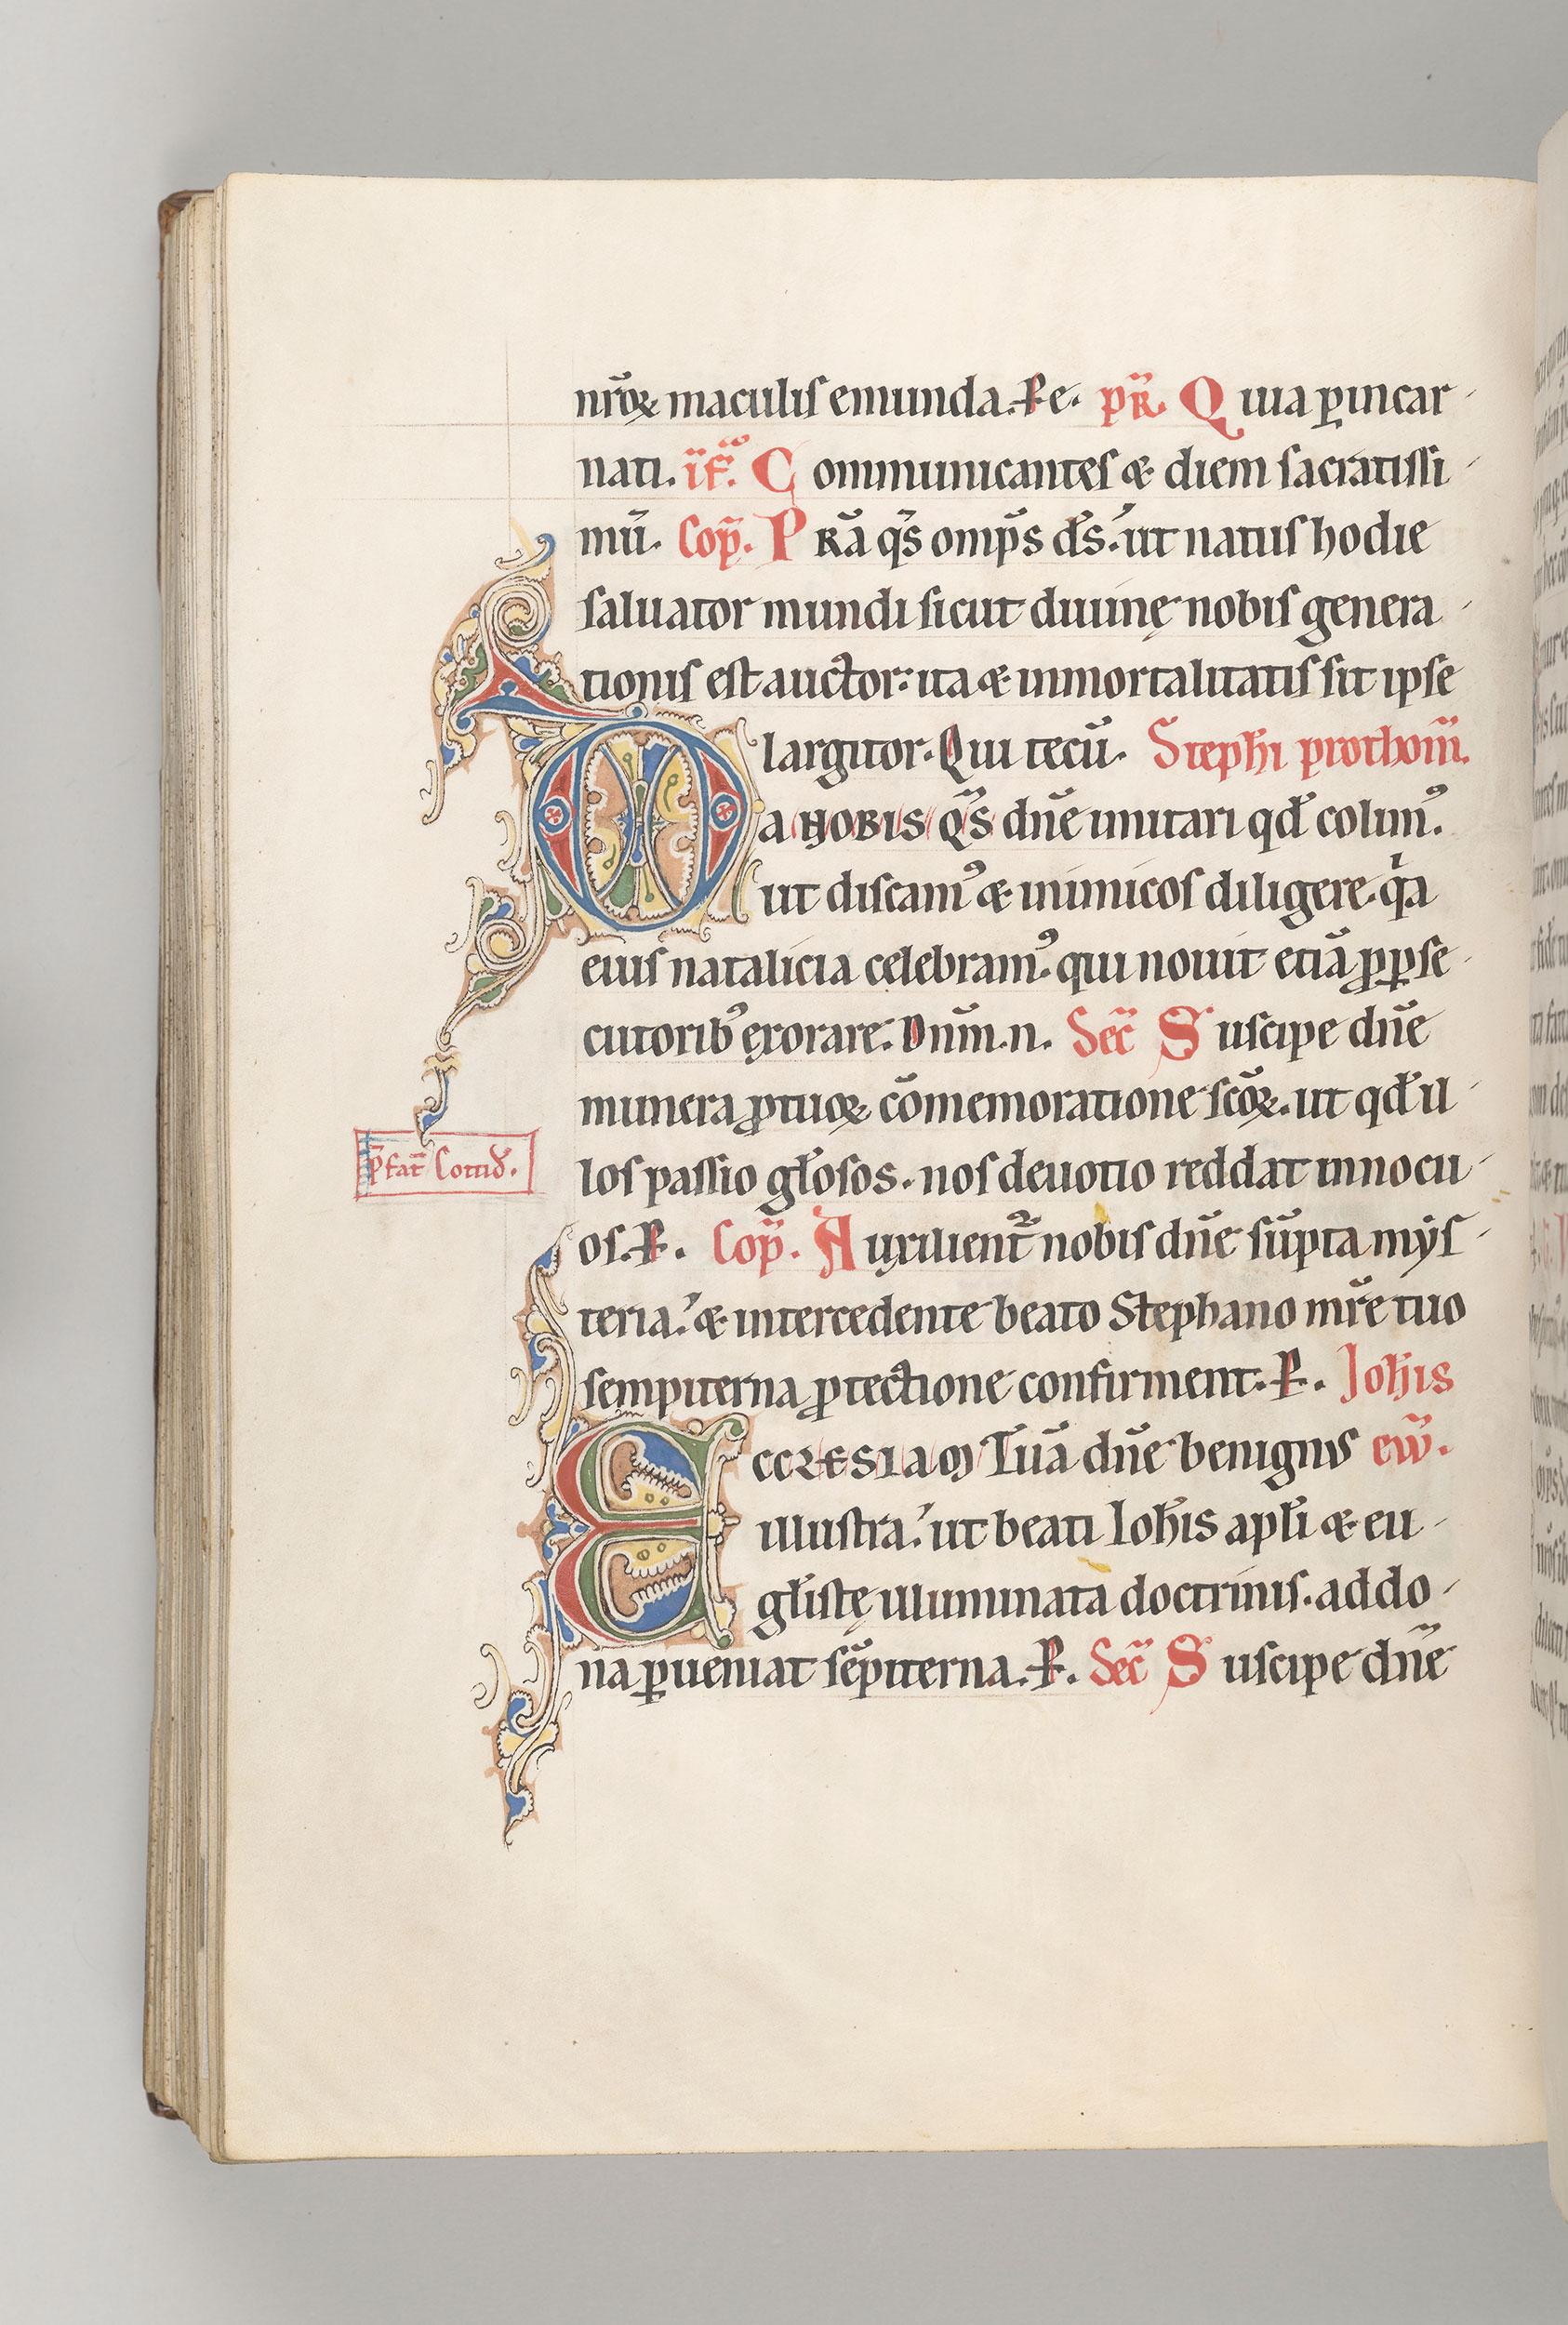 nr̄oꝝ maculis emunda. P̵e. pr̄. Quia ꝑ incar-
nati. if̄ra. Communicantes & diem sacratissi-
mū. Cop̄. Pra᷑ q̄s omp̄s d̄s. ut natus hodie
saluator mundi sicut diuinę nobis genera-
tionis est auctor: ita & inmortalitatis sit ipse
largitor. Qui tecū. Steph̄i prothom̄.
Da nobis q̄s dn̄e imitari qd̄ colimꝰ.
ut discamꝰ & inimicos diligere. qͥa
eius natalicia celebramꝰ. qui nouit etiā ꝓ ꝑse-
cutoribꝰ exorare. Dnm̄. n. Sec̄ Suscipe dn̄e
munera ꝓ tuoꝝ cōmemoratione sc̄oꝝ. ut qd̄ il-
Pfat̄ Cottid̄.
los passio gl̄osos. nos deuotio reddat innocu-
os. P̵. Cop̄. Auxilient᷑ nobis dn̄e sūpta mẏs-
teria. & intercedente beato Stephano mr̄e tuo
sempiterna ꝓtectione confirment. P̵. Joh̄is
Ecclesiam Tuā dn̄e benignus ew̄.
illustra. ut beati Ioh̄is apl̄i & eu-
gl̄istę illuminata doctrinis. ad do-
na ꝑueniat sēpiterna. P̵. Sec̄ Suscipe dn̄e